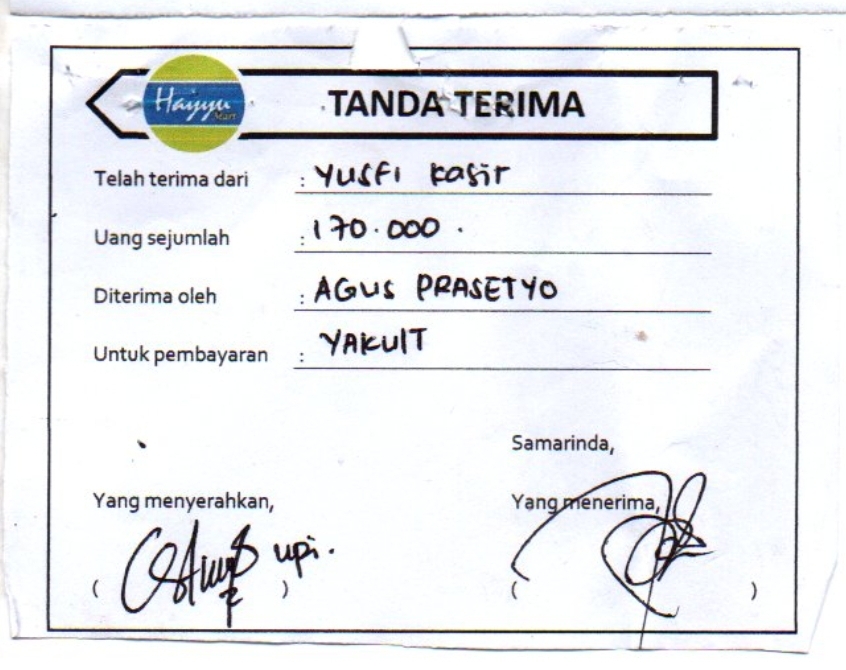 Haiyyu
Mart
TANDA TERIMA
Telah terima dari : YUSFI kasir
Uang sejumlah : 170.000.
Diterima oleh : AGUS PRASETYO
Untuk pembayaran : YAKULT
Samarinda,
Yang menyerahkan, Yang menerima,
( upi. ) ( )